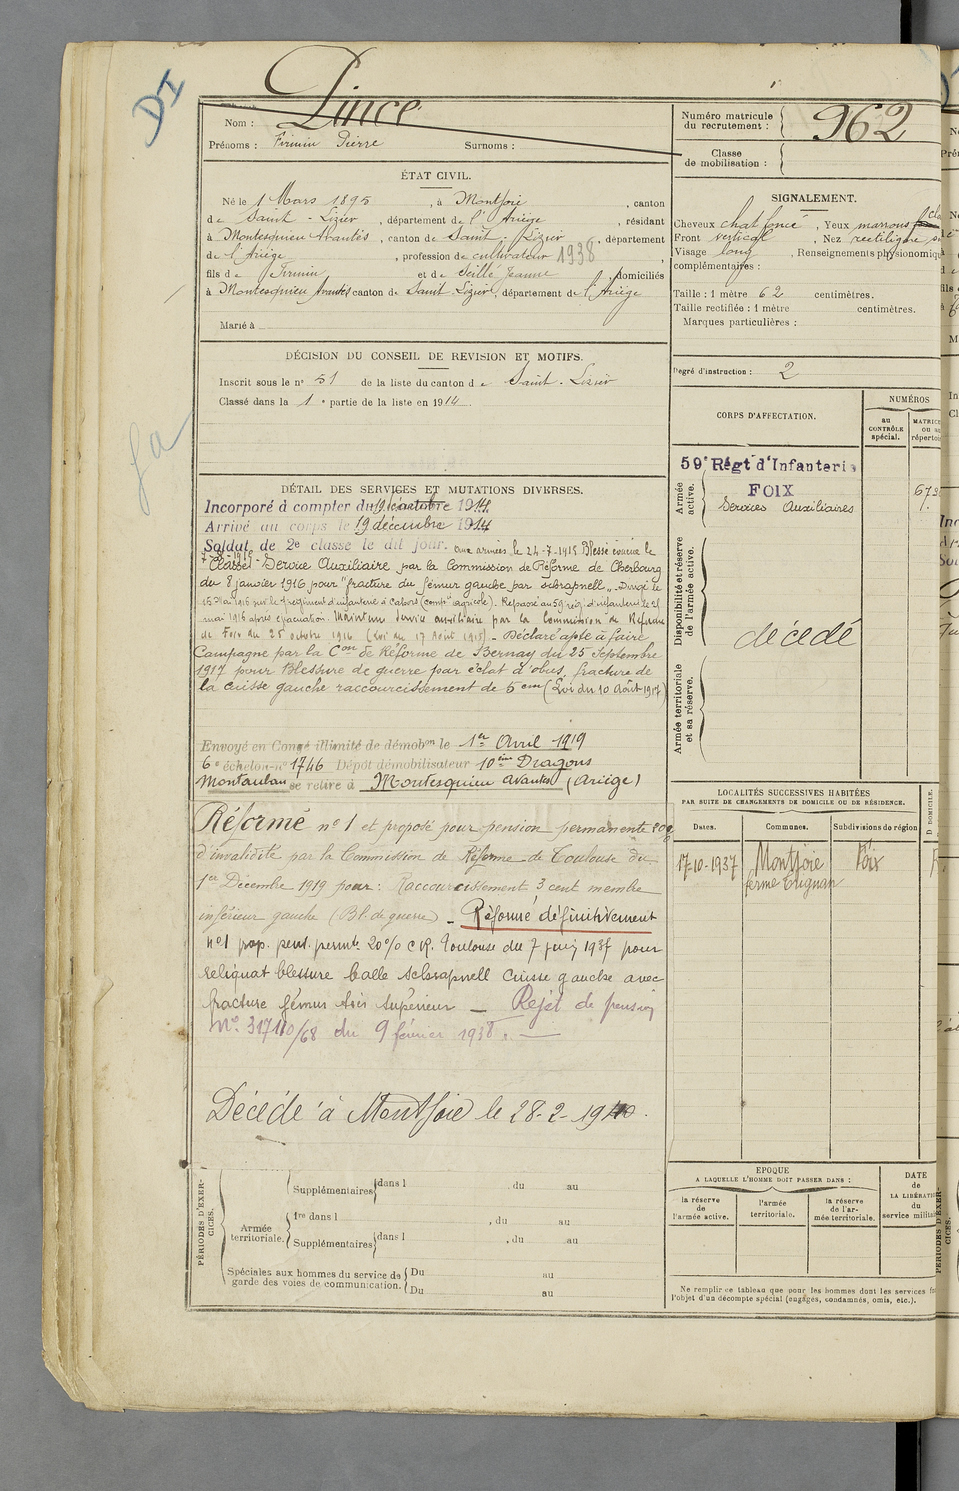 DI
Nom : Pince
Prénoms : Firmin Pierre Surnoms :
Numéro matricule du recrutement : 962
Classe de mobilisation :
ÉTAT CIVIL.
Né le 1 Mars 1895, à Montjoie, canton
de Saint-Lizier, département de l'Ariège, résidant
à Montesquieu Avantès, canton de Saint-Lizier, département
de l'Ariège, profession de cultivateur 1938,
fils de Firmin et de Seillé Jeanne, domiciliés
à Montesquieu Avantès canton de Saint Lizier, département de l'Ariège
Marié à
SIGNALEMENT.
Cheveux chat foncé, Yeux marrons
Front vertical, Nez rectiligne
Visage long, Renseignements physionomiqu
complémentaires :
Taille : 1 mètre 62 centimètres.
Taille rectifiée : 1 mètre centimètres.
Marques particulières :
Degré d'instruction : 2
DÉCISION DU CONSEIL DE REVISION ET MOTIFS.
Inscrit sous le n° 51 de la liste du canton de Saint-Lizier
Classé dans la 1e partie de la liste en 1914.
CORPS D'AFFECTATION.
NUMÉROS
au CONTRÔLE spécial.
Armée active.
59e Régt d'Infanterie
FOIX
Services Auxiliaires
Disponibilité et réserve de l'armée active.
décédé
Armée territoriale et sa réserve.
DÉTAIL DES SERVICES ET MUTATIONS DIVERSES.
Incorporé à compter du 19 octobre 1914
Arrivé au corps le 19 décembre 1914
Soldat de 2e classe le dit jour. aux armées le 24-7-1915 Blessé évacué le
Classé Service Auxiliaire par la Commission de Réforme de Cherbourg
du 8 janvier 1916 pour "fracture du fémur gauche par schrapnell". Dirigé le
mai 1916 après évacuation. Maintenu service auxiliaire par la Commission de Réforme
de Foix du 25 octobre 1916 (Loi du 17 Août 1915). Déclaré apte à faire
Campagne par la Con de Réforme de Bernay du 25 Septembre
1917 pour Blessure de guerre par éclat d'obus, fracture de
la cuisse gauche raccourcissement de 5 cm (Loi du 10 Août 1917)
Envoyé en Congé illimité de démobon le 1er Avril 1919
6e échelon n° 1746 Dépôt démobilisateur 10ème Dragons
Montauban se retire à Montesquieu Avantès (Ariège)
Réformé n° 1 et proposé pour pension permanente 20%
d'invalidité par la Commission de Réforme de Toulouse du
1er Décembre 1919 pour : Raccourcissement 3 cent membre
inférieur gauche (Bl. de guerre) - Réformé définitivement
n°1 prop. pens. permte 20% C.R. Toulouse du 7 juin 1937 pour
reliquat blessure balle schrapnell Cuisse gauche avec
fracture fémur tiers supérieur — Rejet de pension
M°. 317110/68 du 9 février 1938. —
Décédé à Montjoie le 28-2-1940.
LOCALITÉS SUCCESSIVES HABITÉES
PAR SUITE DE CHANGEMENTS DE DOMICILE OU DE RÉSIDENCE.
Dates. Communes. Subdivisions de région
17-10-1937 Montjoie Foix
ferme
PÉRIODES D'EXERCICES.
Supplémentaires dans l , du au
Armée territoriale. 1re dans l , du au
Supplémentaires dans l , du au
Spéciales aux hommes du service de garde des voies de communication. Du au
Du au
EPOQUE
A LAQUELLE L'HOMME DOIT PASSER DANS :
la réserve de l'armée active.
l'armée territoriale.
la réserve de l'armée territoriale.
DATE
de
LA LIBÉRATI
du
service milita
Ne remplir ce tableau que pour les hommes dont les services
l'objet d'un décompte spécial (engagés, condamnés, omis, etc.).